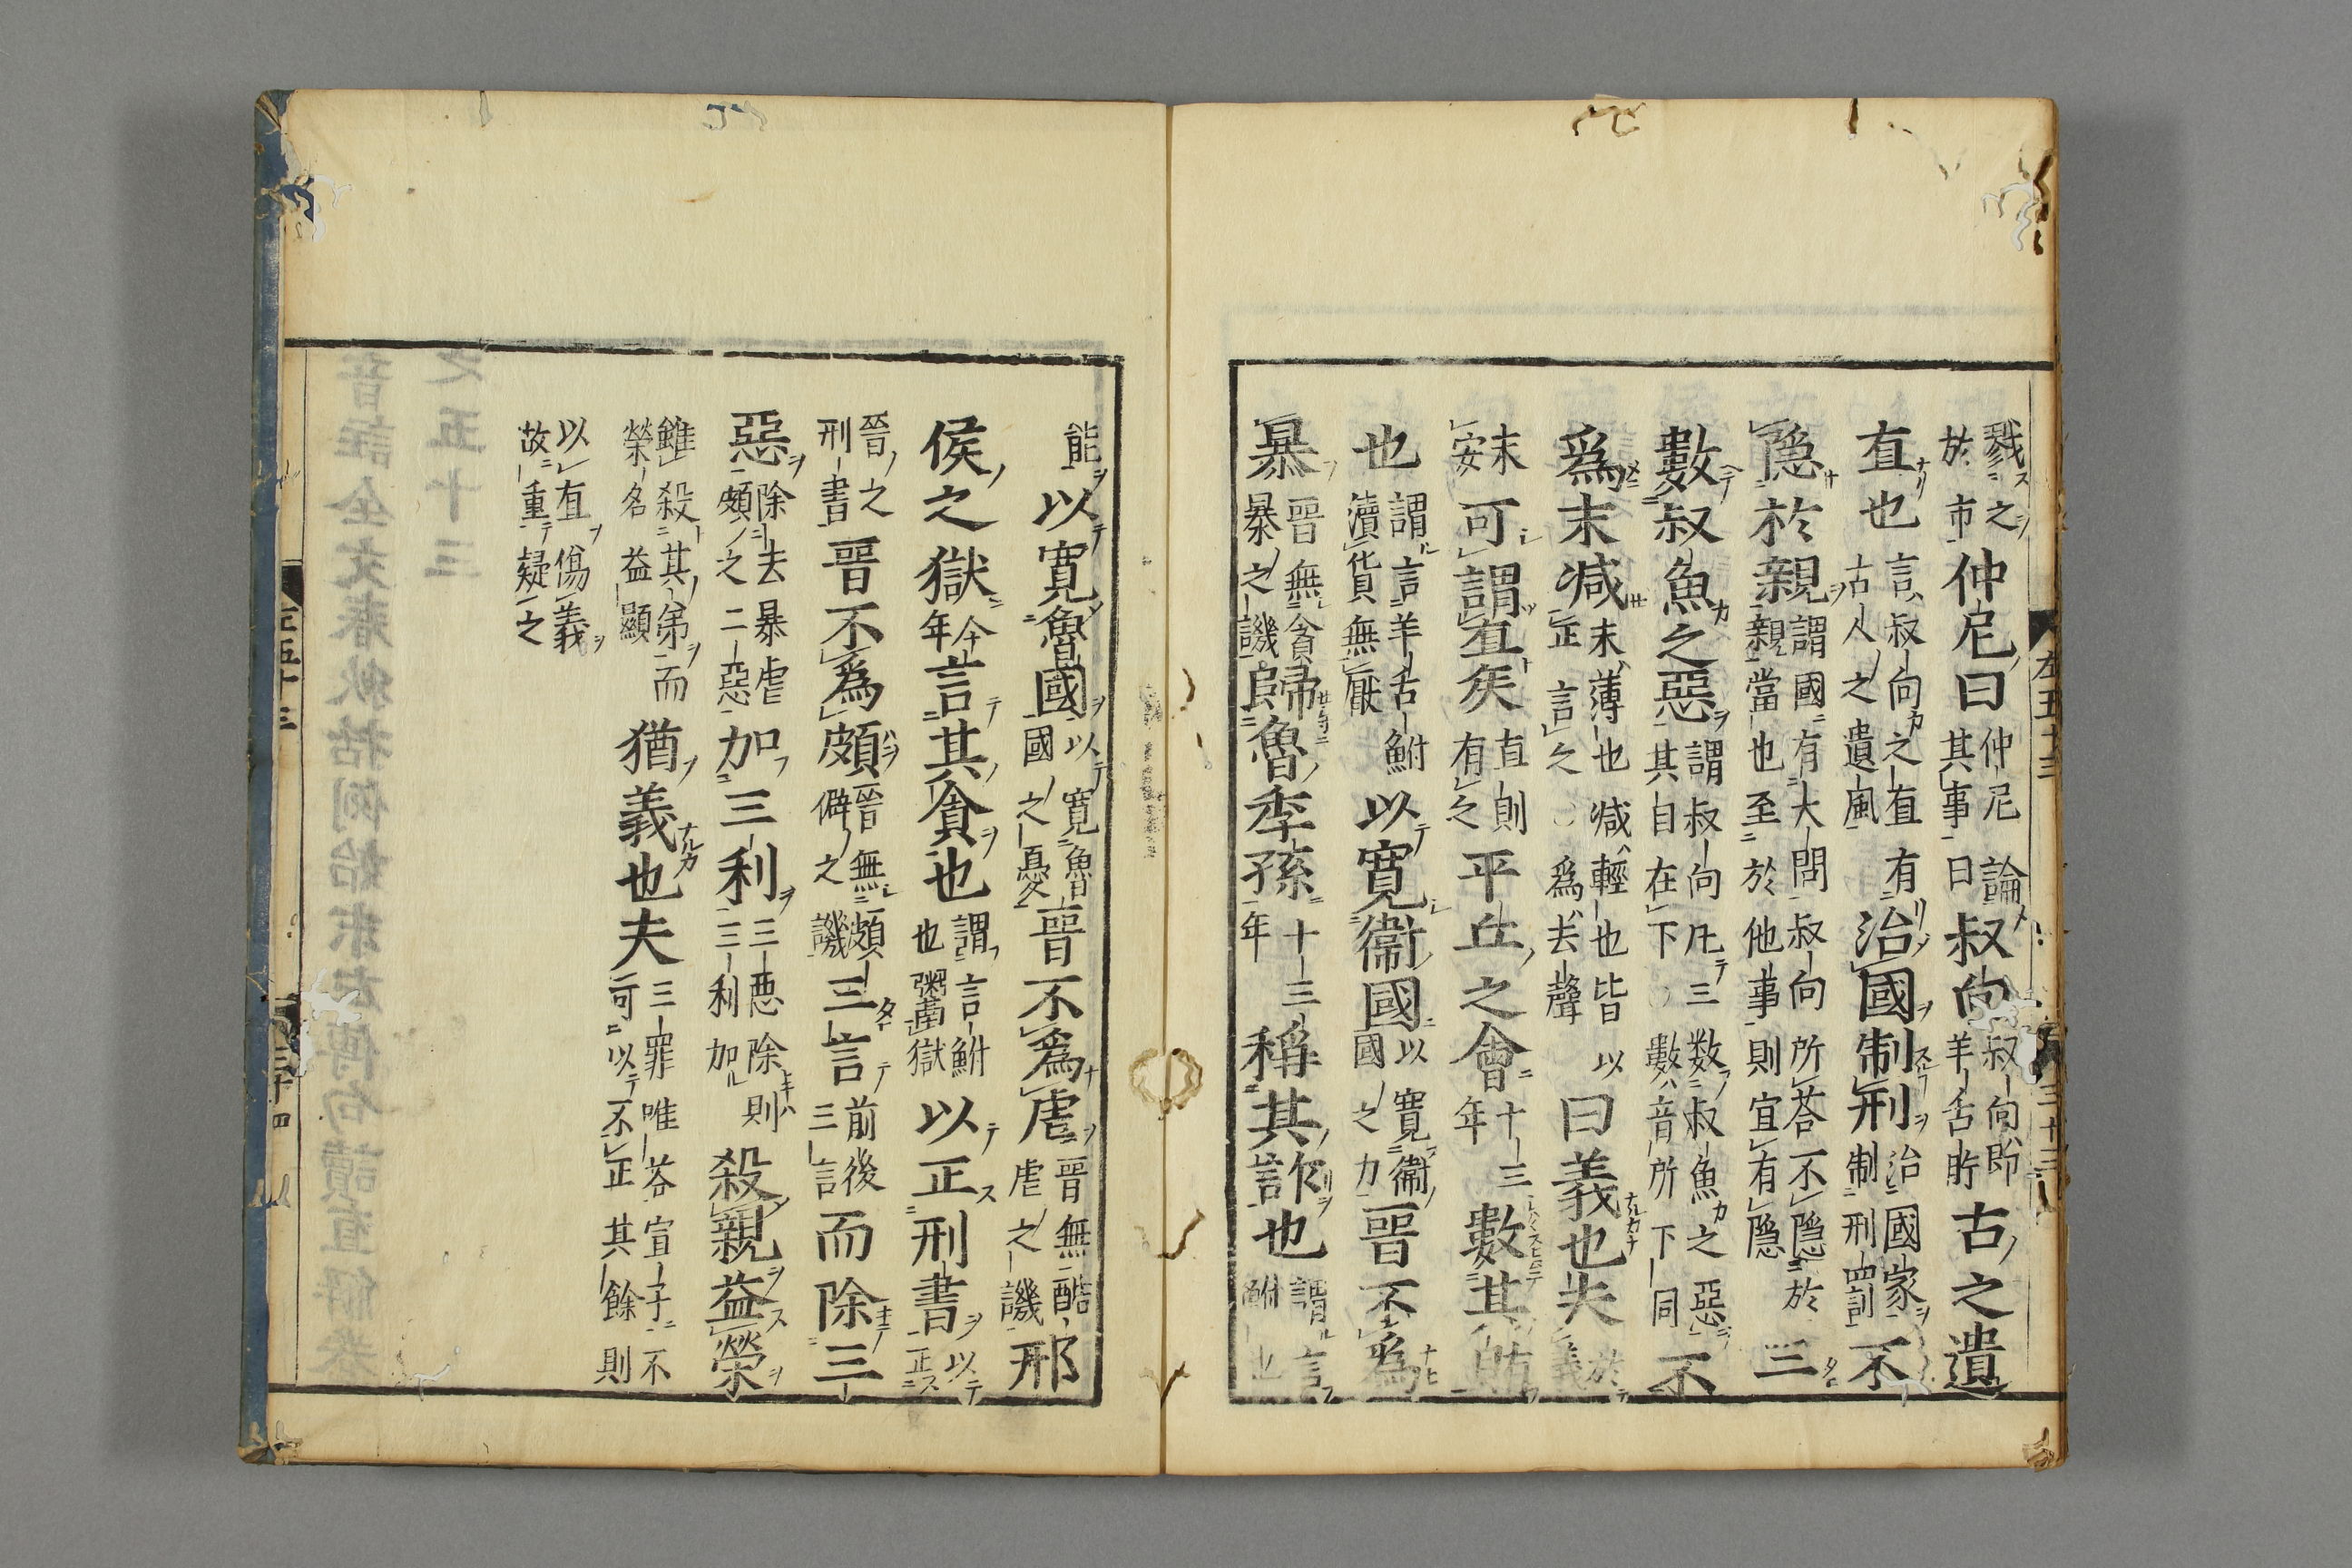 戮之於市仲尼曰仲尼論其事曰叔向叔向即羊舌肹古之遺
直也言叔向之直有古人之遺風治國制刑治國家制刑罰不
隱於親謂國有大問叔向所荅不隱於親當也至於他事則宜有隱三
數叔魚之惡謂叔向凡三数叔魚之惡其自在下數音所下同不
爲末減末薄也減輕也皆以正言之爲去聲曰義也夫於義
末安可謂直矣直則有之平丘之會十三年數其賄
也謂言羊舌鮒瀆貨無厭以寛衞國以寛衞國之力晉不爲
暴晉無貪暴之譏歸魯季孫十三年稱其詐也謂言鮒也
左五十三
三十三
能以寛魯國以寛魯國之憂晉不爲虐晉無酷虐之譏邢
侯之獄今年言其貪也謂言鮒也鬻獄以正刑書以正
晉之刑書晉不爲頗晉無頗僻之譏三言前後三言而除三
惡除去暴虐頗之二惡加三利三惡除則三利加殺親益榮
雖殺其弟而榮名益顯猶義也夫三罪唯荅宣子不可以不正其餘則
以直傷義故重疑之
左五十三
三十四